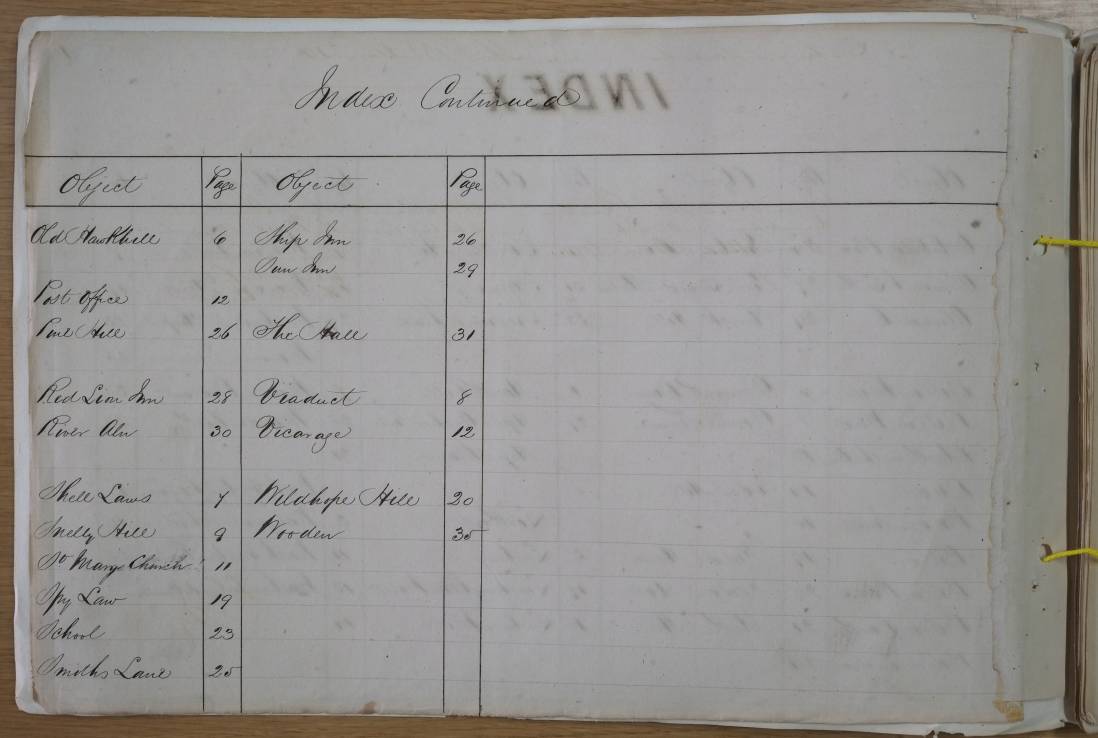 Index Continued
INDEX
Object Page Object Page
Old Hawkhill 6 Ship Inn 26
Sun Inn 29
Post Office 12
Pine Hill 26 The Hall 31
Red Lion Inn 28 Viaduct 8
River Aln 30 Vicarage 12
Shell Laws 7 Wildhope Hill 20
Snelly Hill 9 Wooden 35
St Marys Church 11
Spy Law 19
School 23
Smiths Lane 25